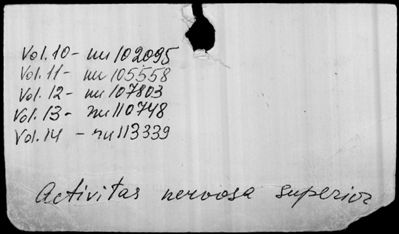 Vol. 10 - nu 102095
Vol. 11 - nu 105558
Vol. 12 - nu 107803
Vol. 13 - nu 110748
Vol. 14 - nu 113339
Activitas nervosa superior